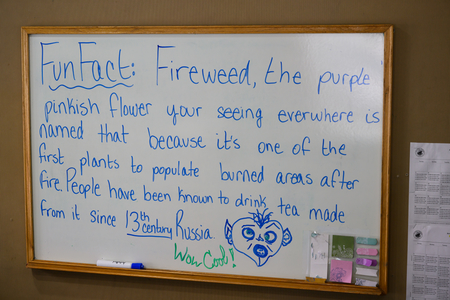 Fun Fact: Fireweed, the purple
pinkish flower your seeing everwhere is
named that because it's one of the
first plants to populate burned areas after
fire. People have been known to drink tea made
from it since 13th century Russia.
Wow Cool!